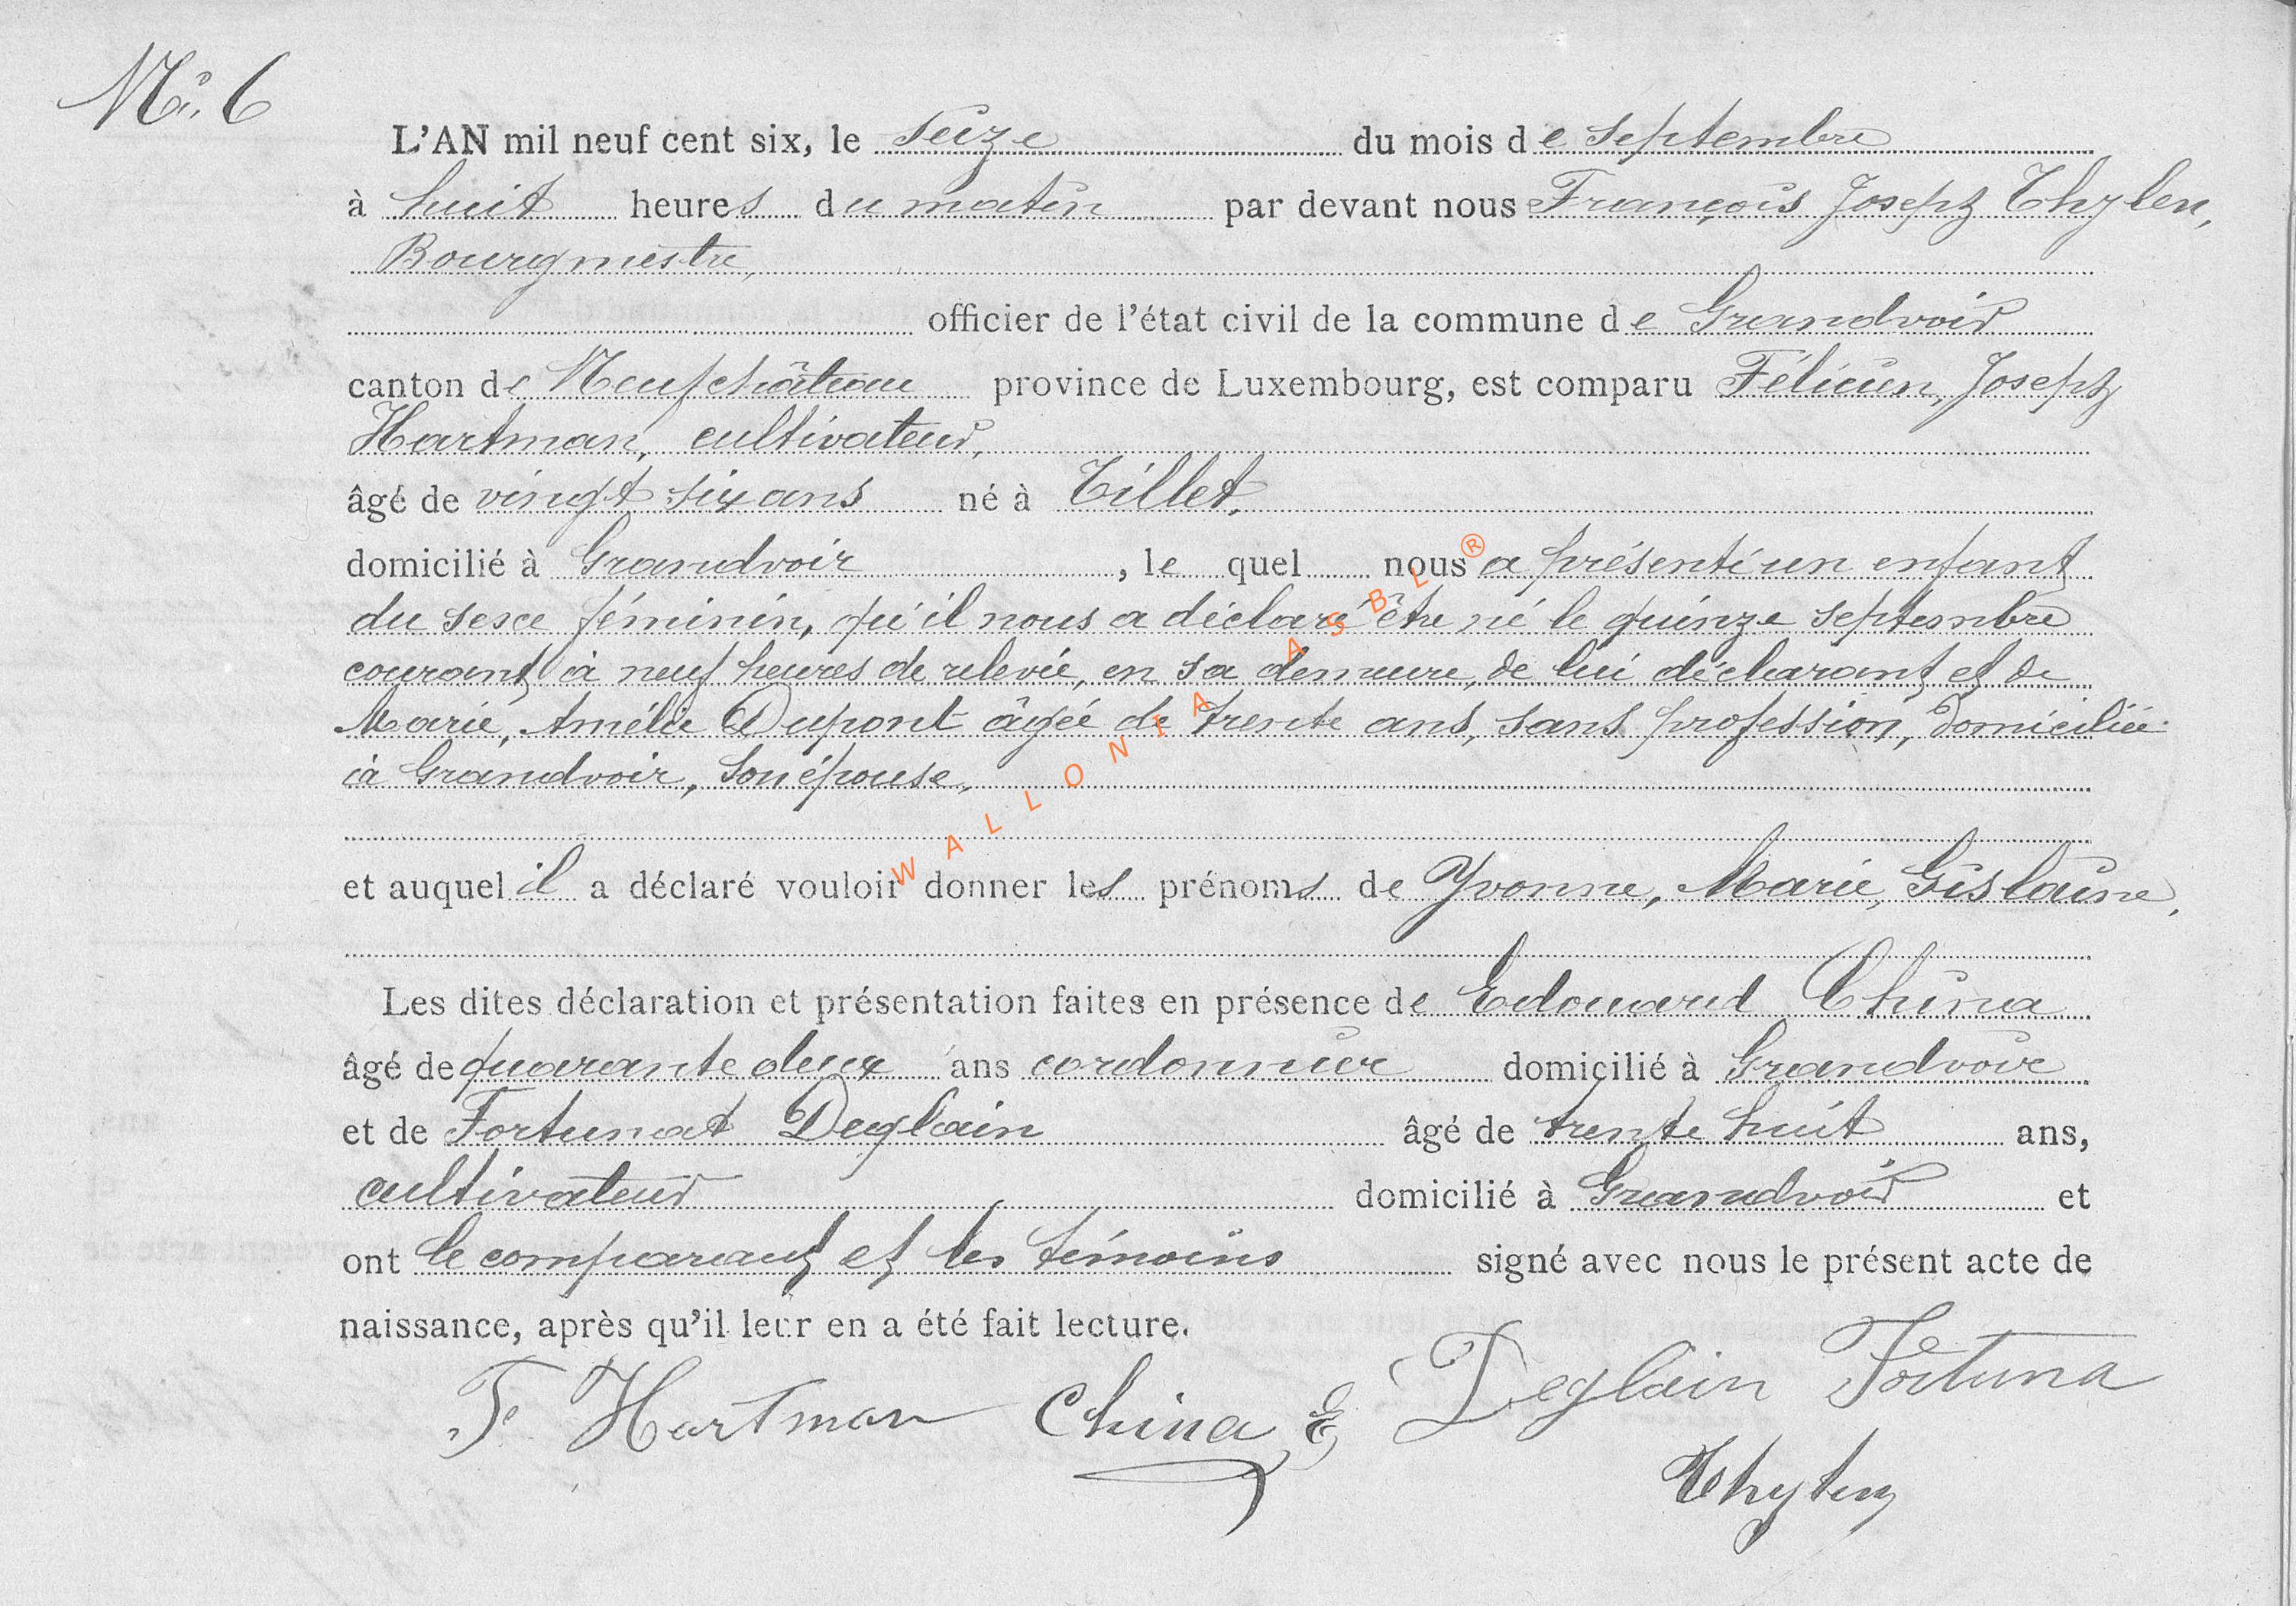 No. 6
L'AN mil neuf cent six, le seize du mois de septembre
à huit heures du matin par devant nous François Joseph Thylen,
Bourgmestre,
officier de l'état civil de la commune de Grandvoir
canton de Neufchâteau province de Luxembourg, est comparu Félicien, Joseph
Hartman, cultivateur,
âgé de vingt six ans né à Tillet,
domicilié à Grandvoir, le quel nous a présenté un enfant
du sexe féminin, qu'il nous a déclaré être né le quinze septembre
courant à neuf heures de relevée, en sa demeure, de lui déclarant et de
Marie, Amélie Dupont âgée de trente ans, sans profession, domiciliée
à Grandvoir, son épouse,
et auquel il a déclaré vouloir donner les prénoms de Yvonne, Marie, Gislaine,
Les dites déclaration et présentation faites en présence de Edouard China
âgé de quarante deux ans cordonnier domicilié à Grandvoir
et de Fortunat Deglain âgé de trente huit ans,
cultivateur domicilié à Grandvoir et
ont le comparant et les témoins signé avec nous le présent acte de
naissance, après qu'il leur en a été fait lecture.
F. Hartman China E Deglain Fortuna
Thylen
WALLONIA ASBL ®